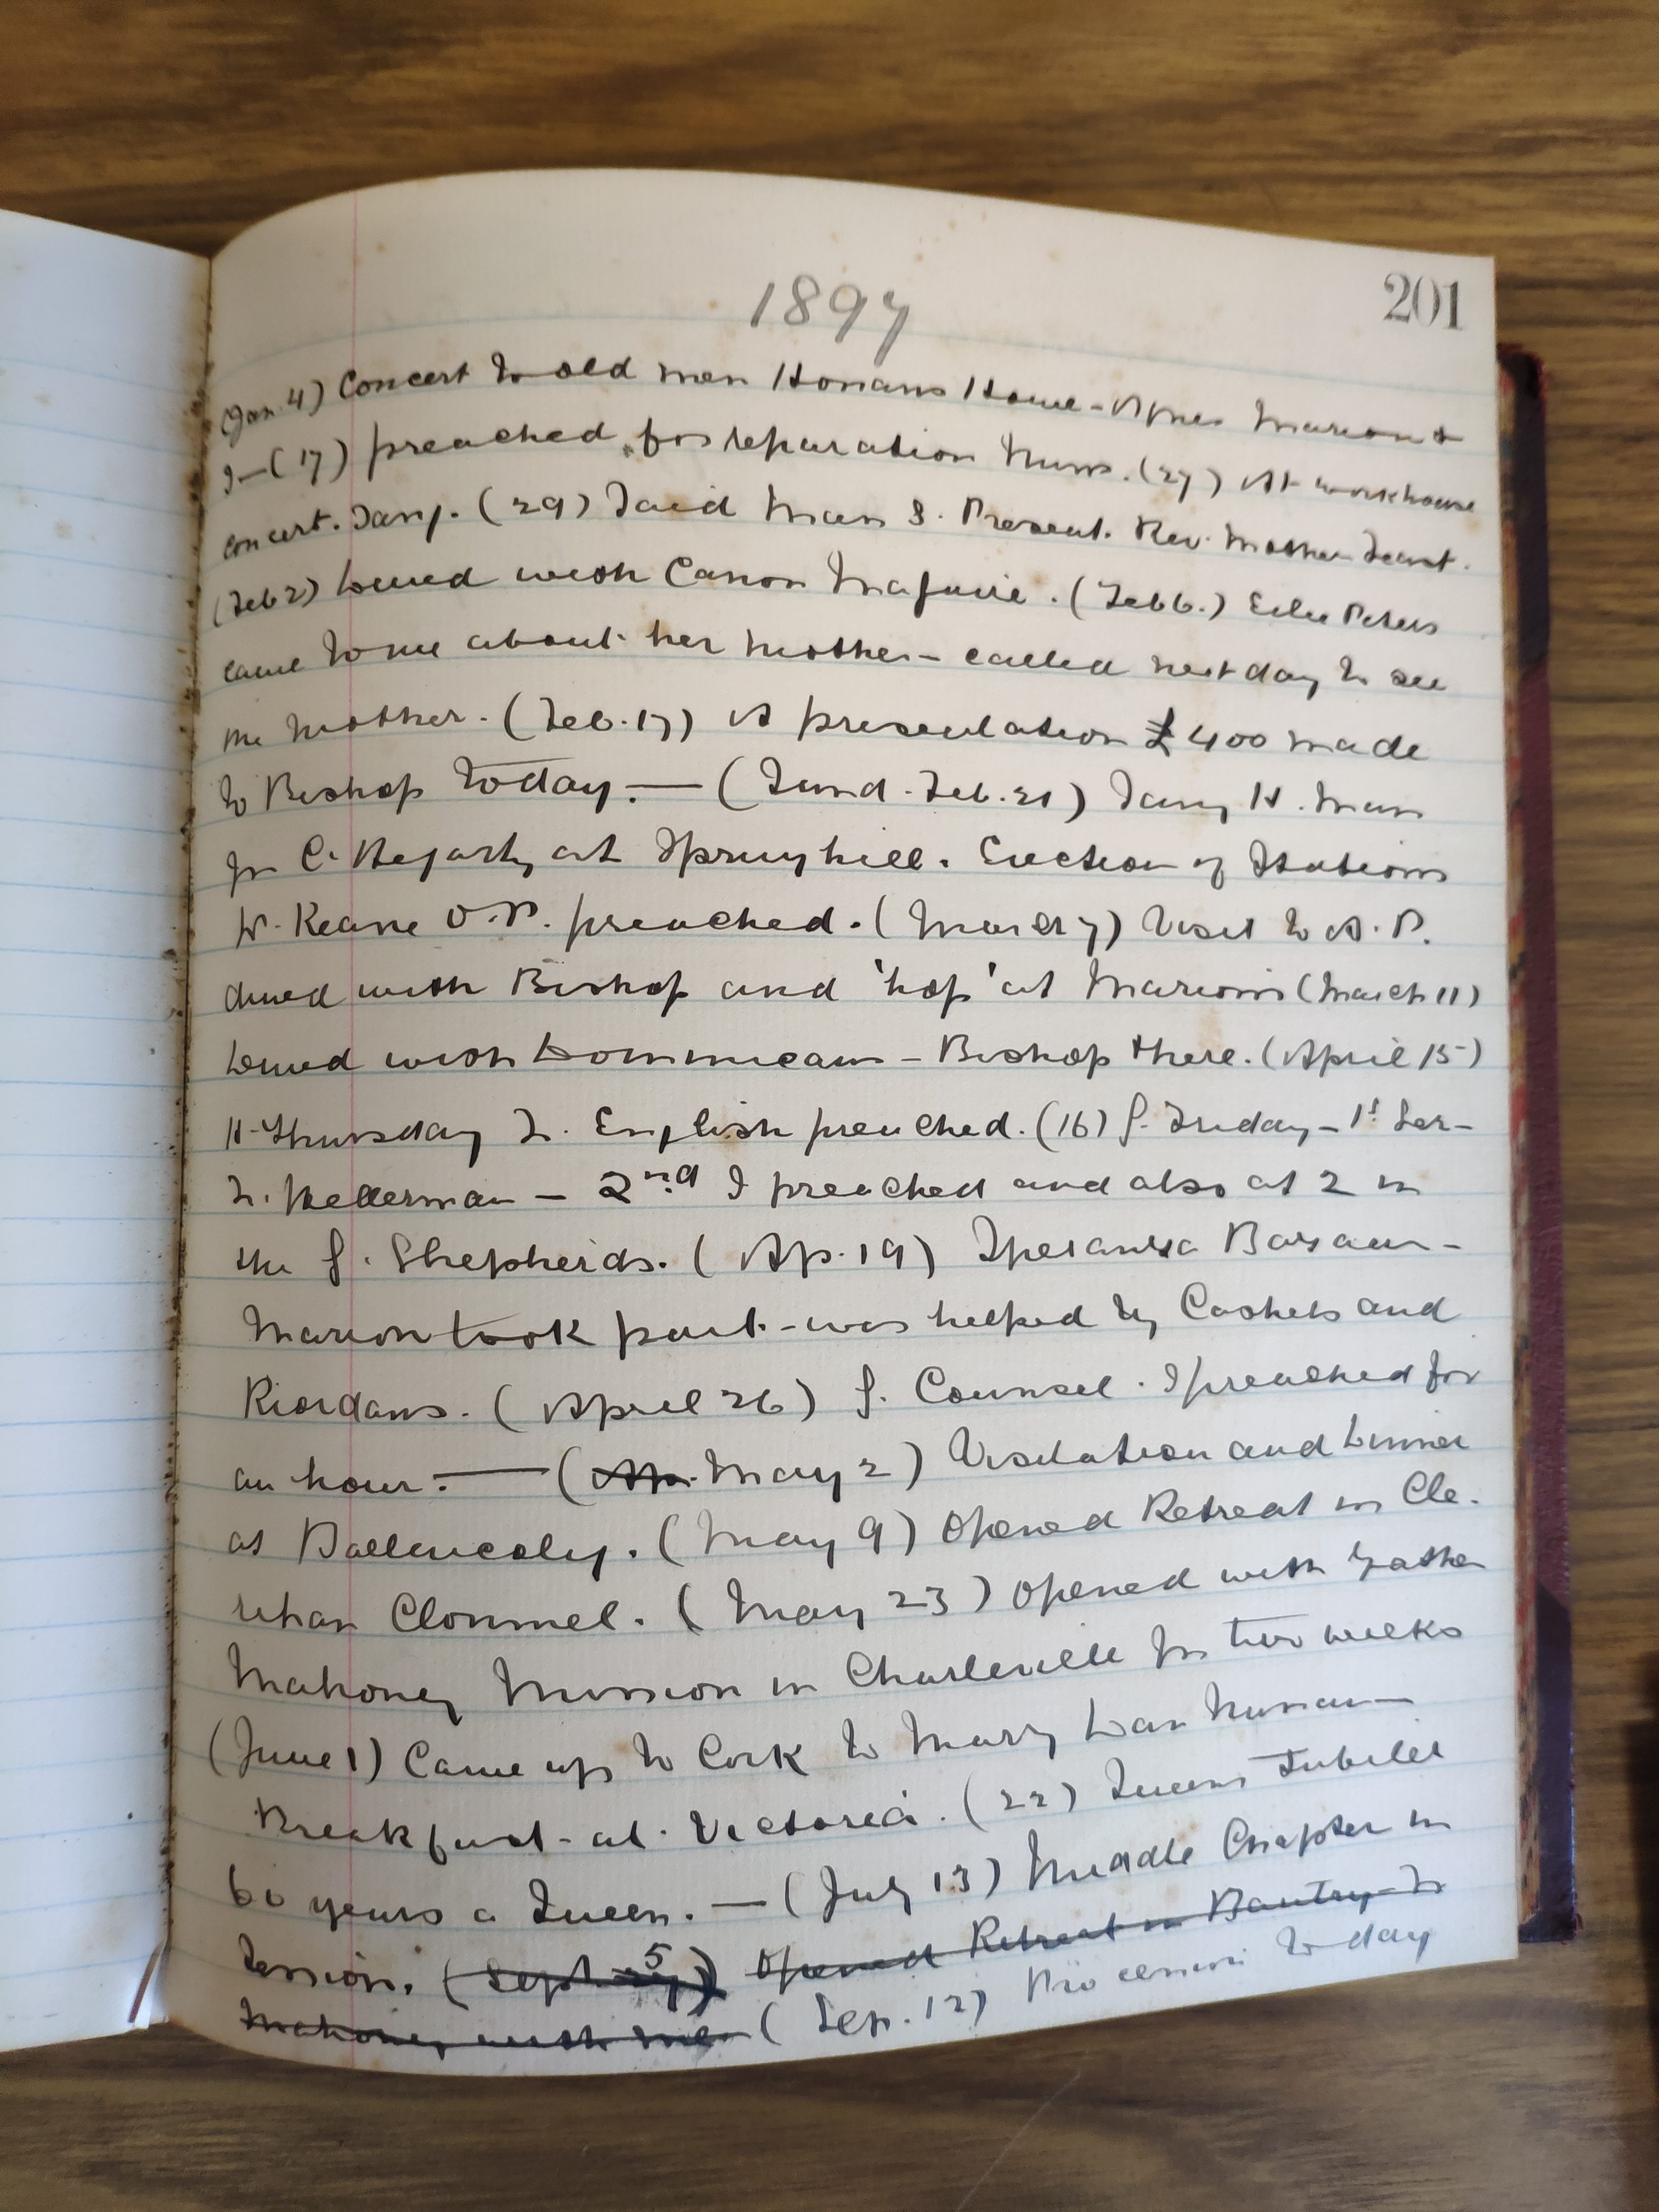 201
1897
(Jan. 4) Concert to old men Honans Home - Agnes Marion &
I - (17) preached for reparation Nuns. (27) At workhouse
concert. Sang. (29) Said Mass S. Present. Rev. Mother
(Feb 2) Dined with Canon Maguire. (Feb 6.) Peters
came to me about her mother - called next day to see
the mother. (Feb. 17) A presentation £400 made
to Bishop today. — (Sund. Feb. 21) Sang H. Mass
for C. Hegarty at Spring hill. Erection of Stations
Keane O.P. preached. (March 7) Visit to A. P.
dined with Bishop and 'hop' at Marion's (March 11)
Dined with Dominicans - Bishop there. (April 15)
H. Thursday F. English preached. (16) G. Friday - 1st Ser-
F. Kellerman - 2nd I preached and also at 2 in
the G. Shepherds. (Ap. 19) Speranza Bazaar -
Marion took part - was helped by Cashels and
Riordans. (April 26) G. Counsel. I preached for
an hour. — (Ap. May 2) Visitation and Dinner
at Ballincolly. (May 9) Opened Retreat in Cle.
rihan Clonmel. (May 23) Opened with Father
Mahoney Mission in Charleville for two weeks
(June 1) Came up to Cork to Marry Dan Nunan -
Breakfast at Victoria. (22) Queens Jubilee
60 years a Queen. — (July 13) Middle Chapter in
Session. (Sept 5) Opened Retreat in Bantry - Fr
Mahoney with me (Sep. 12) Procession to day